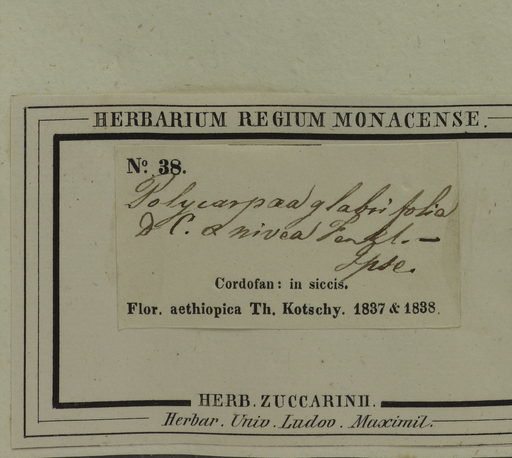 HERBARIUM REGIUM MONACENSE.
No. 38.
Polycarpaea glabrifolia
D C. α nivea Fenzl. —
Ipse.
Cordofan: in siccis.
Flor. aethiopica Th. Kotschy. 1837 & 1838.
HERB. ZUCCARINII.
Herbar. Univ. Ludov. Maximil.